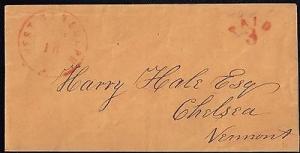 PAID
3
Harry Hale Esq
Chelsea
Vermont